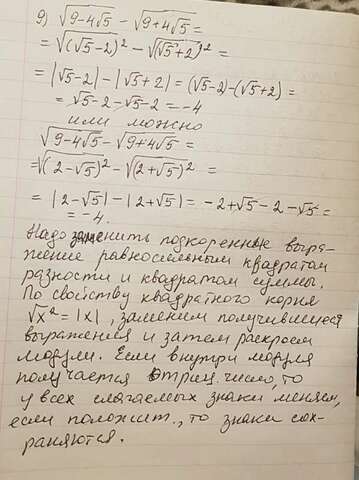 9) √9-4√5 - √9+4√5 =
= √(√5-2)² - √(√5+2)² =
= |√5-2| - |√5+2| = (√5-2)-(√5+2) =
= √5-2-√5-2 = -4
или можно
√9-4√5 - √9+4√5 =
= √(2-√5)² - √(2+√5)² =
= |2-√5| - |2+√5| = -2+√5-2-√5 =
= -4.
Надо заменить подкоренные выра-
жение равносильным квадратом
разности и квадратом суммы.
По свойству квадратного корня
√x² = |x|, заменим получившиеся
выражения и затем раскроем
модули. Если внутри модуля
получается отриц. число, то
у всех слагаемых знаки меняем,
если положит., то знаки сох-
раняются.